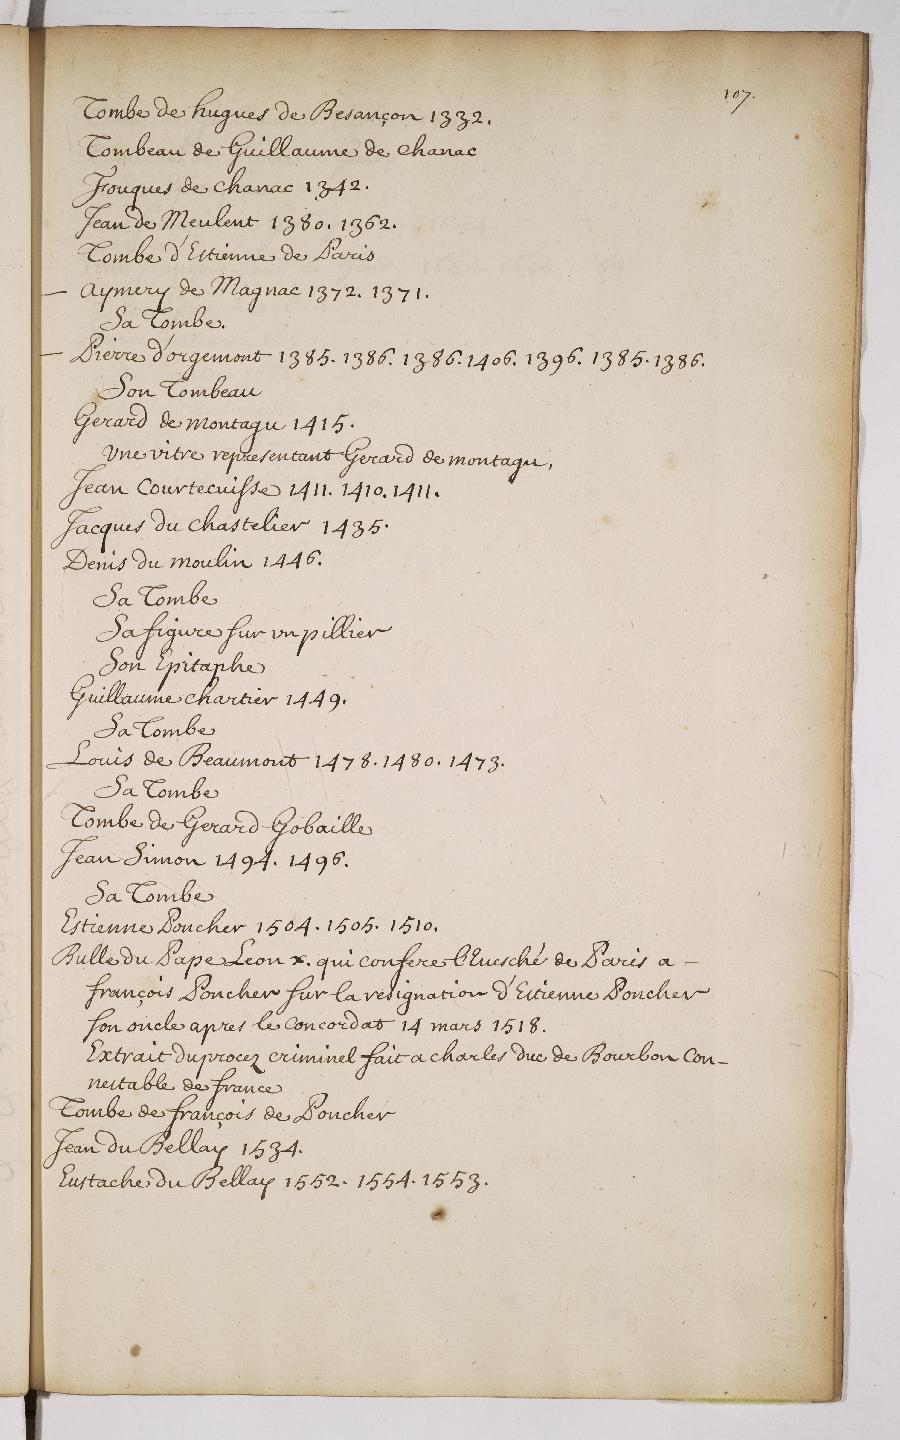 107.
Tombe de hugues de Besançon 1332.
Tombeau de Guillaume de chanac
Fouques de chanac 1342.
Jean de Meulent 1380. 1362.
Tombe d'Estienne de Paris
— Aymery de Magnac 1372. 1371.
Sa Tombe.
— Pierre d'orgemont 1385. 1386. 1386. 1406. 1396. 1385. 1386.
Son Tombeau
Gerard de montagu 1415.
Vne vitre representant Gerard de montagu,
Jean Courtecuisse 1411. 1410. 1411.
Jacques du chastelier 1435.
Denis du moulin 1446.
Sa Tombe
Sa figure sur vn pillier
Son Epitaphe
Guillaume chartier 1449.
Sa Tombe
Louis de Beaumont 1478. 1480. 1473.
Sa Tombe
Tombe de Gerard Gobaille
Jean Simon 1494. 1496.
Sa Tombe
Estienne Poncher 1504. 1505. 1510.
Bulle du Pape Leon x. qui confere l'Euesché de Paris a —
françois Poncher sur la resignation d'Estienne Poncher
son oncle apres le concordat 14 mars 1518.
Extrait du procez criminel fait a charles duc de Bourbon Con-
nestable de france
Tombe de françois de Poncher
Jean du Bellay 1534.
Eustache du Bellay 1552. 1554. 1553.